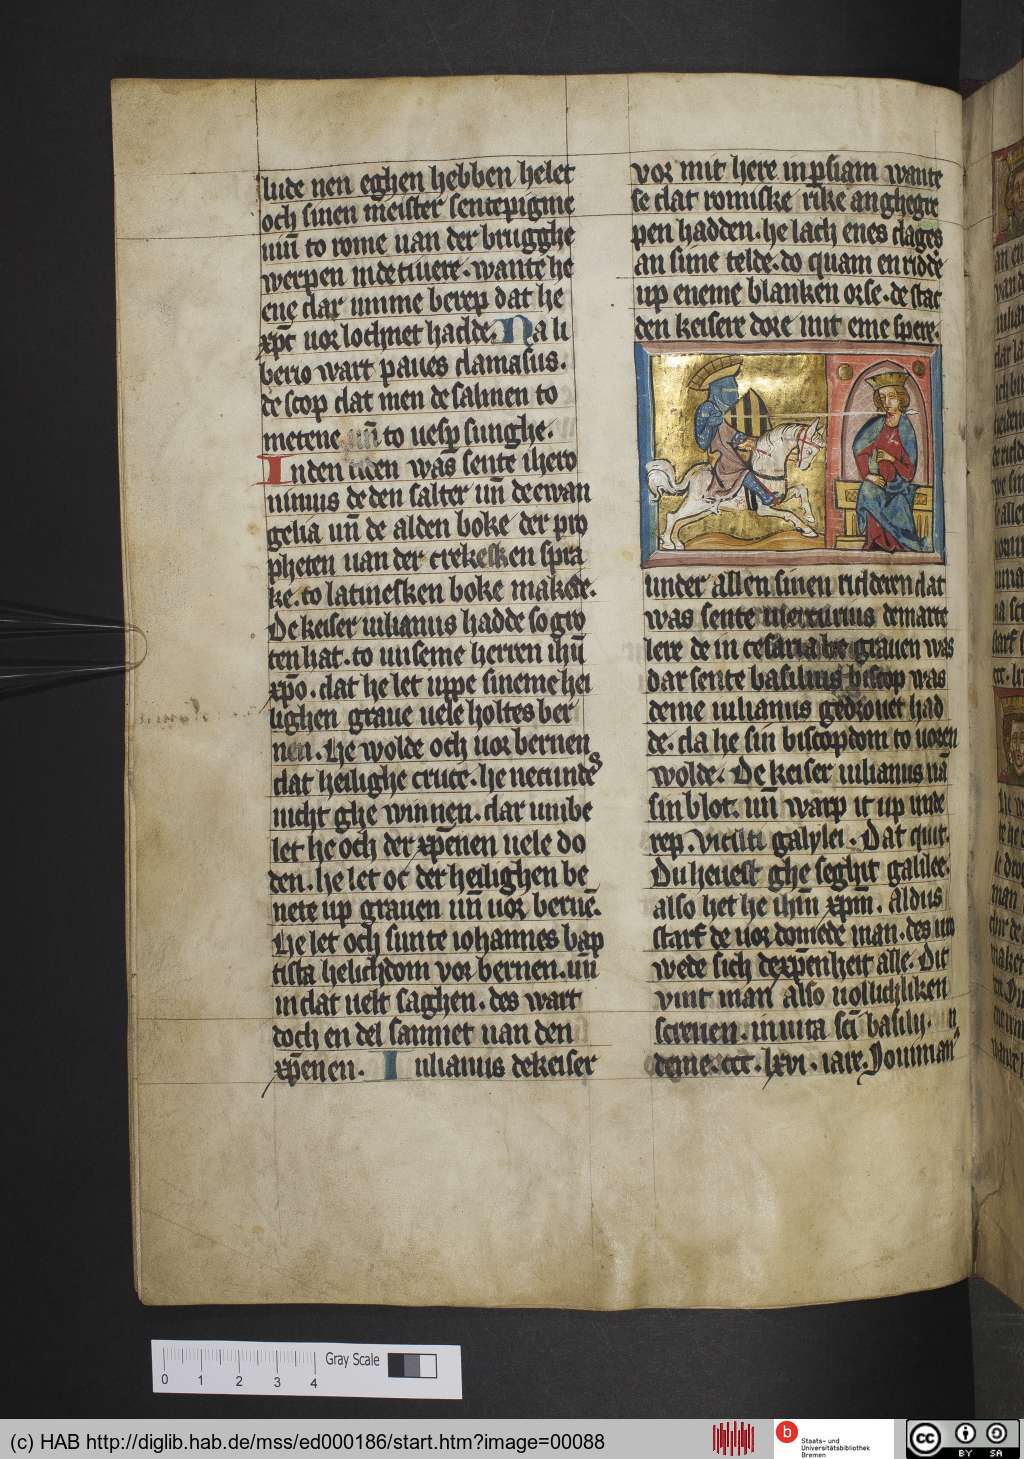 lude nen eghen hebben helet
och sinen meister sentepigme
niū to rome uan der brugghe
werpen indetiuere. wante he
ene dar umme berep dat he
xp̄c uorlochnet hadde. Na li
berio wart paues damasus.
de scop dat men de salmen to
metene uñ to uesp̄ sunghe.
Inden tiden was sente ihero
nimus de den salter uñ de ewan
gelia uñ de alden boke der pro
pheten uan der crekesken spra
ke. to latinesken boke makede.
De keiser iulianus hadde so gro
ten hat. to unseme herren ihū
xp̄o. dat he let uppe sineme hei
lighen graue uele holtes ber
nen. He wolde och uor bernen
dat heilighe cruce. he ne cunde's
nicht ghe winnen. dar umbe
let he och der xp̄enen uele do
den. he let oc der heilighen be
nete up grauen uñ uor bernē.
He let och sunte iohannes bap
tista helichdom vor bernen. uñ
in dat uelt saghen. des wart
doch en del sammet uan den
xp̄enen. Iulianus dekeiser
vor mit here in p̄siam wante
se dat romiske rike anghegre
pen hadden. he lach enes dages
an sime telde. do quam en ridd'e
up eneme blanken orse. de stac
den keisere dore mit eme spere.
under allen sinen ridderen dat
was sente mercurius de marte
lere de in cesaria be grauen was
dar sente basilius biscop was
deme iulianus gedrouet had
de. da he sin biscopdom to uoren
wolde. De keiser iulianus nā
sin blot. uñ warp it up unde
rep. vicisti galylei. Dat quit.
Du heuest ghe seghit galilee.
also het he ihm̄ xpm̄. Aldus
starf de uor domede man. des un
wede sich de xp̄enheit alle. Dit
vint man also uollichliken
screuen. in uita sc̄i basilij. N
deme. ccc. lxvi. iare. Jouinian
0 1 2 3 4
Gray Scale
(c) HAB http://diglib.hab.de/mss/ed000186/start.htm?image=00088
b
Staats- und
Universitätsbibliothek
Bremen
cc
BY SA